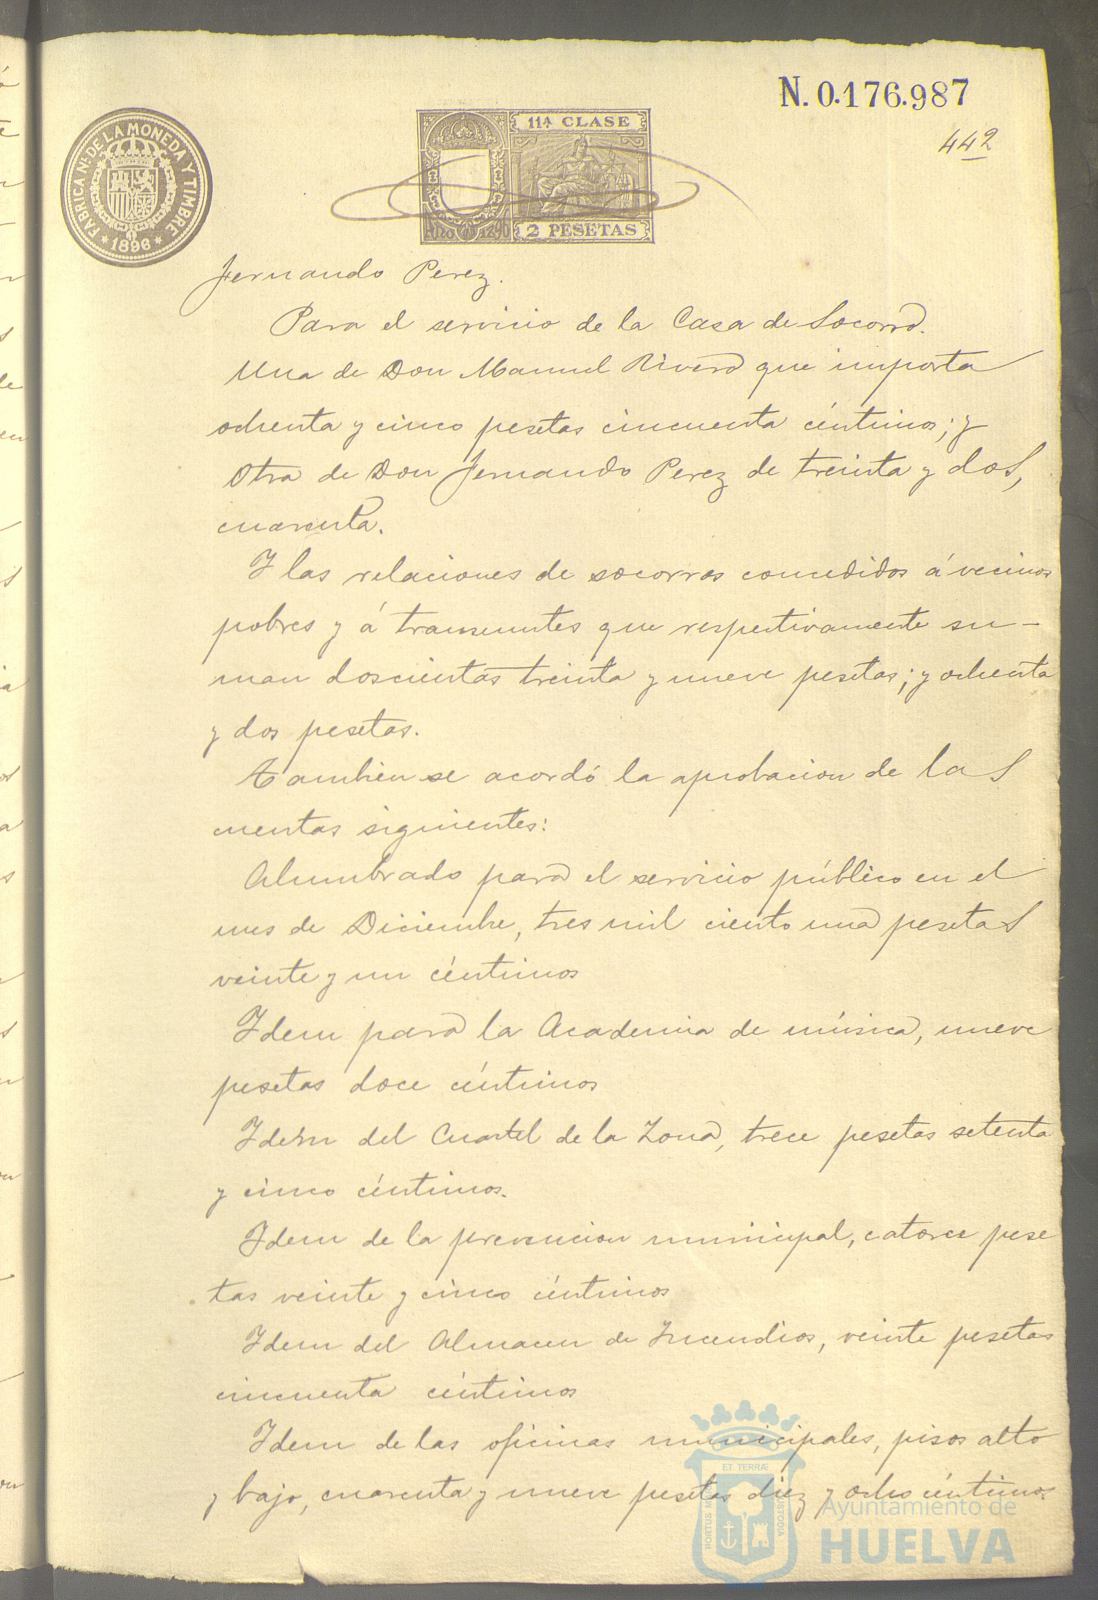 N. 0.176.987
442
FABRICA NL. DE LA MONEDA Y TIMBRE
* 1896 *
11ª CLASE
Año 1896
2 PESETAS
Fernando Perez.
Para el servicio de la Casa de Socorro.
Una de Don Manuel Rivero que importa
ochenta y cinco pesetas cincuenta céntimos; y
Otra de Don Fernando Perez de treinta y dos,
cuarenta.
Y las relaciones de socorros concedidos á vecinos
pobres y á transeuntes que respectivamente su-
man doscientas treinta y nueve pesetas; y ochenta
y dos pesetas.
Tambien se acordó la aprobacion de las
cuentas siguientes:
Alumbrado para el servicio público en el
mes de Diciembre, tres mil ciento una pesetas
veinte y un céntimos
Idem para la Academia de música, nueve
pesetas doce céntimos
Idem del Cuartel de la Zona, trece pesetas setenta
y cinco céntimos.
Idem de la prevencion municipal, catorce pese
tas veinte y cinco céntimos
Idem del Almacen de Incendios, veinte pesetas
cincuenta céntimos
Idem de las oficinas municipales, pisos alto
y bajo, cuarenta y nueve pesetas diez y ocho céntimos.
ET TERRÆ
CUSTODIA
Ayuntamiento de
HUELVA